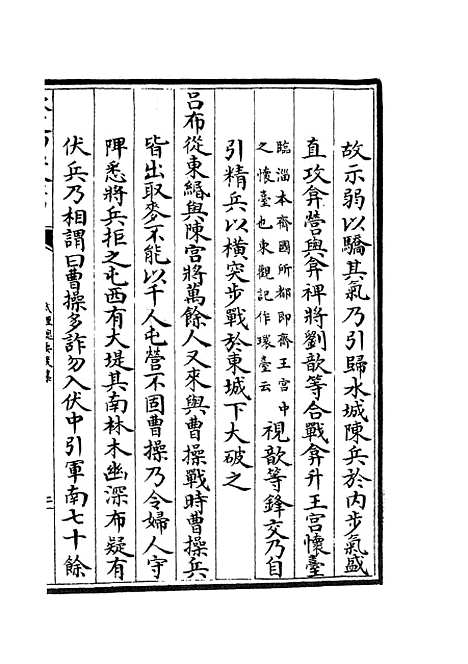 故示弱以驕其氣乃引歸水城陳兵於内步氣盛
直攻弇營與弇禆將劉歆等合戰弇升王宫懷臺
臨淄本齊國所都即齊王宫中
之懷臺也東觀記作環臺云
視歆等鋒交乃自
引精兵以横突步戰於東城下大破之
吕布從東緡與陳宫將萬餘人又來與曹操戰時曹操兵
皆出取麥不能以千人屯營不固曹操乃令婦人守
陴悉將兵拒之屯西有大堤其南林木幽深布疑有
伏兵乃相謂曰曹操多詐勿入伏中引軍南七十餘
二